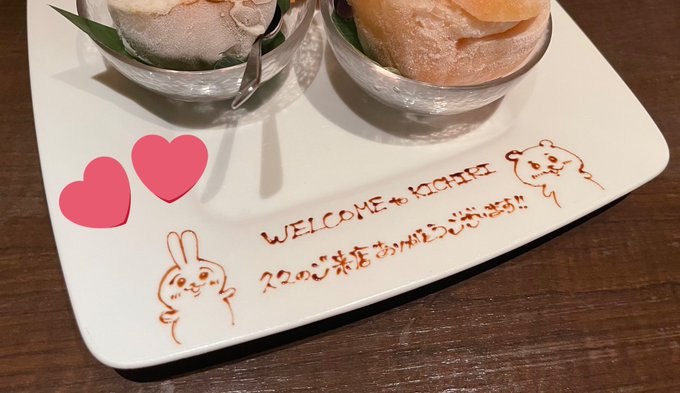 WELCOME to KICHIRI
久々のご来店ありがとうございます!!